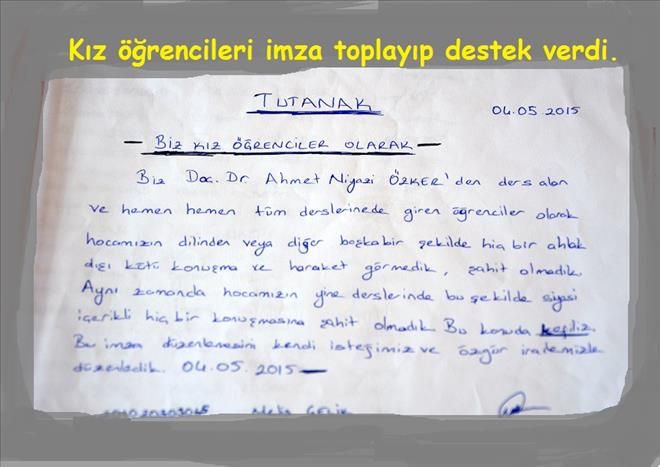 Kız öğrencileri imza toplayıp destek verdi.
TUTANAK
04.05.2015
- BİZ KIZ ÖĞRENCİLER OLARAK -
Biz Doç. Dr. Ahmet Niyazi ÖZKER'den ders alan
ve hemen hemen tüm derslerinede giren öğrenciler olarak
hocamızın dilinden veya diğer başka bir şekilde hiç bir ahlak
dışı kötü konuşma ve haraket görmedik, şahit olmadık.
Aynı zamanda hocamızın yine derslerinde bu şekilde siyasi
içerikli hiç bir konuşmasına şahit olmadık Bu konuda kefiliz.
Bu imza düzenlemesini kendi isteğimiz ve özgür irademizle
düzenledik. 04.05.2015 -